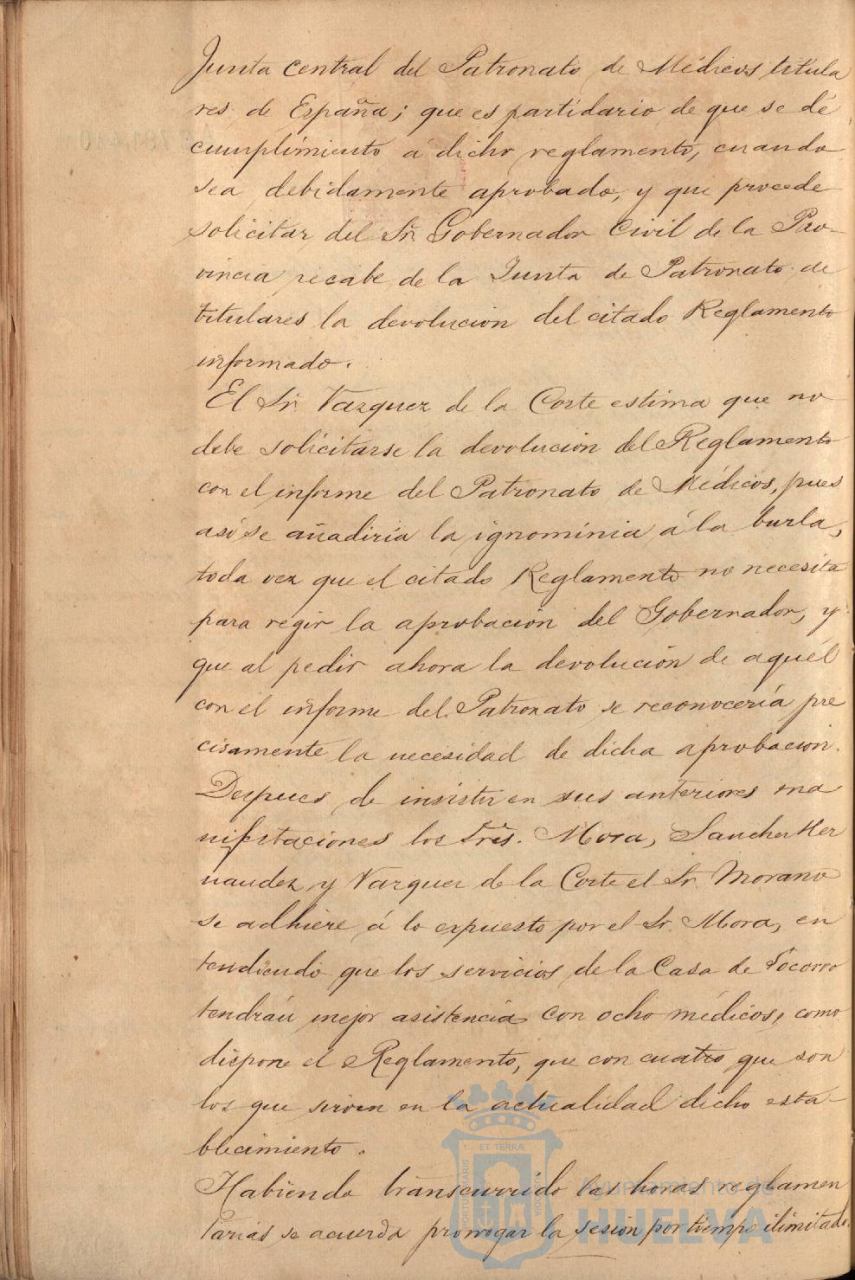 Junta central del Patronato de Médicos titula
res de España; que es partidario de que se dé
cumplimiento a dicho reglamento, cuando
sea debidamente aprobado, y que procede
solicitar del Sr. Gobernador Civil de la Pro-
vincia recabe de la Junta de Patronato de
titulares la devolucion del citado Reglamento
informado.
El Sr. Vazquez de la Corte estima que no
debe solicitarse la devolucion del Reglamento
con el informe del Patronato de Médicos, pues
así se añadiría la ignominia á la burla,
toda vez que el citado Reglamento no necesita
para regir la aprobación del Gobernador, y
que al pedir ahora la devolución de aquél
con el informe del Patronato se reconocería pre
cisamente la necesidad de dicha aprobacion.
Despues de insistir en sus anteriores ma
nifestaciones los Sres. Mora, Sanchez Her
nandez y Vazquez de la Corte el Sr. Morano
se adhiere á lo expuesto por el Sr. Mora, en
tendiendo que los servicios de la Casa de Socorro
tendrán mejor asistencia con ocho médicos, como
dispone el Reglamento, que con cuatro que son
los que sirven en la actualidad dicho esta-
blecimiento.
Habiendo transcurrido las horas reglamen
tarias se acuerda prorrogar la sesion por tiempo ilimitado
Ayuntamiento de
HUELVA